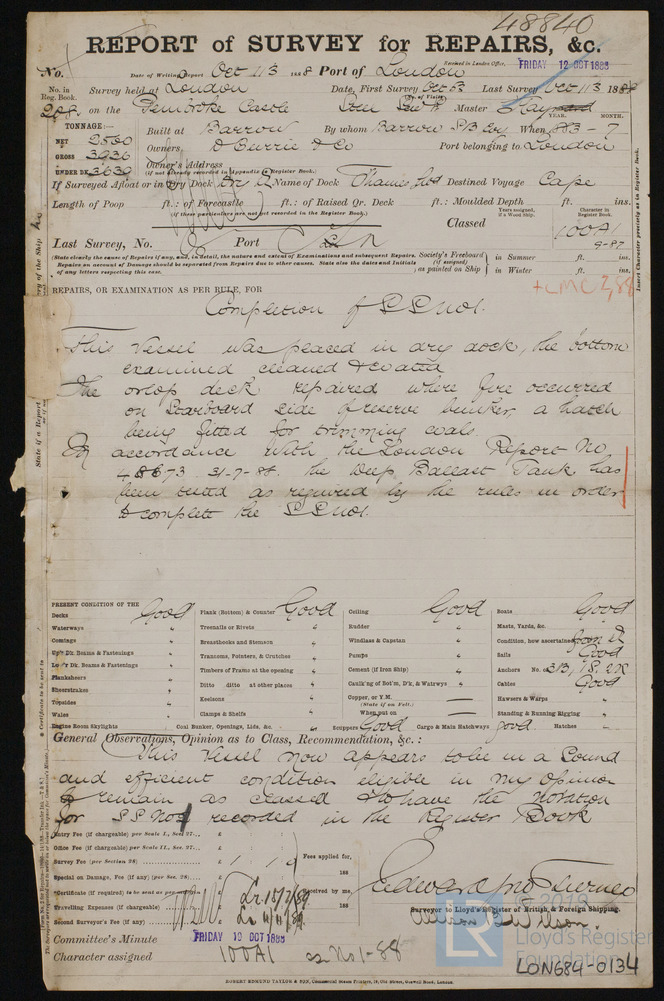 48840
REPORT of SURVEY for REPAIRS, &c.
Received in London Office, FRIDAY 12 OCT 1888
No. Date of Writing Report Oct 11/3 1888 Port of London
No. in Reg. Book. Survey held at London Date, First Survey Oct Last Survey Oct 11/3 188
on the Pembroke Castle Master
TONNAGE:— YEAR. MONTH.
NET 2500 Built at Barrow By whom Barrow S/B Coy When 883 - 7
GROSS 3936 Owners D Currie & Co Port belonging to London
UNDER DK 3639 Owner's Address
(if not already recorded in Appendix to Register Book.)
If Surveyed Afloat or in Dry Dock Dry Name of Dock Thames Destined Voyage Cape
Length of Poop ft.: of Forecastle ft.: of Raised Qr. Deck ft.: Moulded Depth ft. ins.
(if these particulars are not yet recorded in the Register Book.)
Years assigned, if a Wood Ship. Character in Register Book.
Classed 100A1
9-87
Last Survey, No. Port
(State clearly the cause of Repairs if any, and, in detail, the nature and extent of Examinations and subsequent Repairs.
Repairs on account of Damage should be separated from Repairs due to other causes. State also the dates and Initials
of any letters respecting this case.
Society's Freeboard (if assigned) as painted on Ship
in Summer ft. ins.
in Winter ft. ins.
+LMC 2,88
REPAIRS, OR EXAMINATION AS PER RULE, FOR
Completion of SS No1.
This Vessel was placed in dry dock, the bottom
examined cleaned & coated
The orlop deck repaired where fire occurred
on Starboard side of reserve bunker, a hatch
being fitted for trimming coals.
In accordance with the London Report No
48673 31-7-88. the Deep Ballast Tank has
been tested as required by the rules in order
to complete the SS No1.
PRESENT CONDITION OF THE
Decks Good
Waterways "
Comings "
Up'r Dk. Beams & Fastenings "
Low'r Dk. Beams & Fastenings "
Planksheers
Sheerstrakes "
Topsides "
Wales "
Engine Room Skylights "
Plank (Bottom) & Counter Good
Treenails or Rivets "
Breasthooks and Stemson "
Transoms, Pointers, & Crutches "
Timbers of Frame at the opening "
Ditto ditto at other places "
Keelsons "
Clamps & Shelfs "
Coal Bunker, Openings, Lids, &c. "
Ceiling Good
Rudder "
Windlass & Capstan "
Pumps "
Cement (if Iron Ship) "
Caulk'ng of Bot'm, D'k, & Watrwys "
Copper, or Y.M. —
(State if on Felt.)
When put on —
Scuppers Good Cargo & Main Hatchways Good
Boats Good
Masts, Yards, &c. "
Condition, how ascertained from dk
Sails Good
Anchors No. of 3B, 1S, 2K
Cables Good
Hawsers & Warps "
Standing & Running Rigging "
Hatches "
General Observations, Opinion as to Class, Recommendation, &c.:
This Vessel now appears to be in a sound
and efficient condition eligible in my Opinion
to remain as classed & to have the Notation
for SS No1 recorded in the Register Book
Entry Fee (if chargeable) per Scale I., Sec. 27... £
Office Fee (if chargeable) per Scale II., Sec. 27... £
Survey Fee (per Section 28) £
Special on Damage, Fee (if any) (per Sec. 28) £
Certificate (if required) to be sent as per
Travelling Expenses (if chargeable) £
Second Surveyor's Fee (if any) £
Fees applied for, 188
Received by me, 188
Surveyor to Lloyd's Register of British & Foreign Shipping.
Committee's Minute FRIDAY 19 OCT 1888
Character assigned 100A1 ss No1-88
ROBERT EDMUND TAYLOR & SON, Old Street, Goswell Road, London.
© 2019
LR Lloyd's Register Foundation
LON684-0134